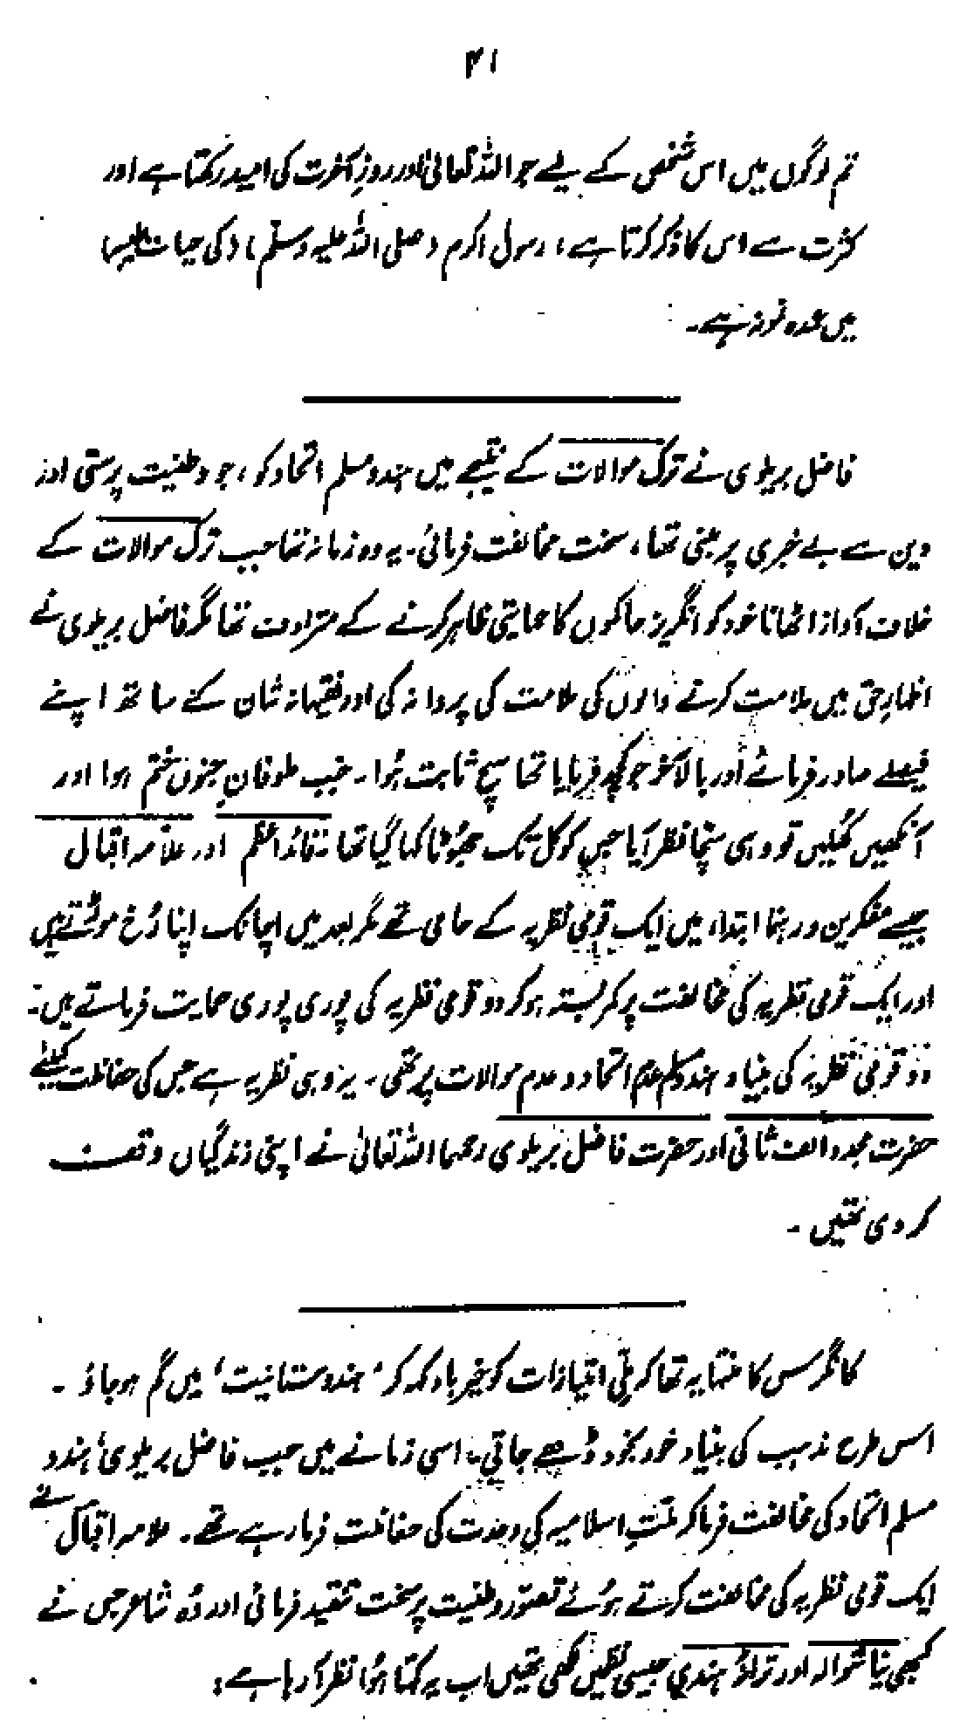 ۴۱
تم لوگوں میں اس شخص کے لیے جو اللہ تعالیٰ اور روزِ آخرت کی امید رکھتا ہے اور
کثرت سے اس کا ذکر کرتا ہے، رسول اکرم (صلی اللہ علیہ وسلم) کی حیات طیبہ
میں عمدہ نمونہ ہے۔
فاضل بریلوی نے ترک موالات کے نتیجے میں ہندو مسلم اتحاد کو، جو وطنیت پرستی اور
دین سے بے خبری پر مبنی تھا، سخت مخالفت فرمائی۔ یہ وہ زمانہ تھا جب ترک موالات کے
خلاف آواز اٹھانا خود کو انگریز حاکموں کا حمایتی ظاہر کرنے کے مترادف تھا مگر فاضل بریلوی نے
اظہارِ حق میں ملامت کرنے والوں کی ملامت کی پروا نہ کی اور فقیہانہ شان کے ساتھ اپنے
فیصلے صادر فرمائے اور بالآخر جو کچھ فرمایا تھا سچ ثابت ہُوا۔ جب طوفانِ جنوں ختم ہوا اور
آنکھیں کھلیں تو وہی سچّا نظر آیا جس کو کل تک جھوٹا کہا گیا تھا۔ قائد اعظم اور علامہ اقبال
جیسے مفکرین و رہنما ابتداء میں ایک قومی نظریہ کے حامی تھے مگر بعد میں اچانک اپنا رُخ موڑتے ہیں
اور ایک قومی نظریہ کی مخالفت پر کمربستہ ہو کر دو قومی نظریہ کی پوری پوری حمایت فرماتے ہیں۔
دو قومی نظریہ کی بنیاد ہندو مسلم عدم اتحاد و عدم موالات پر تھی۔ یہ وہی نظریہ ہے جس کی حفاظت کیلئے
حضرت مجدد الف ثانی اور حضرت فاضل بریلوی رحمہما اللہ تعالیٰ نے اپنی زندگیاں وقف
کر دی تھیں۔
کانگرس کا منشا یہ تھا کہ ملّی امتیازات کو خیرباد کہہ کر ‘ہندوستانیت’ میں گم ہو جاؤ۔
اس طرح مذہب کی بنیاد خود بخود ڈھے جاتی۔ اسی زمانے میں جب فاضل بریلوی ہندو
مسلم اتحاد کی مخالفت فرما کر ملّتِ اسلامیہ کی وحدت کی حفاظت فرما رہے تھے۔ علامہ اقبال نے
ایک قومی نظریہ کی مخالفت کرتے ہوئے تصوّر وطنیت پر سخت تنقید فرمائی اور وُہ شاعر جس نے
کبھی نیا شوالہ اور ترانۂ ہندی جیسی نظمیں لکھی تھیں اب یہ کہتا ہُوا نظر آ رہا ہے: